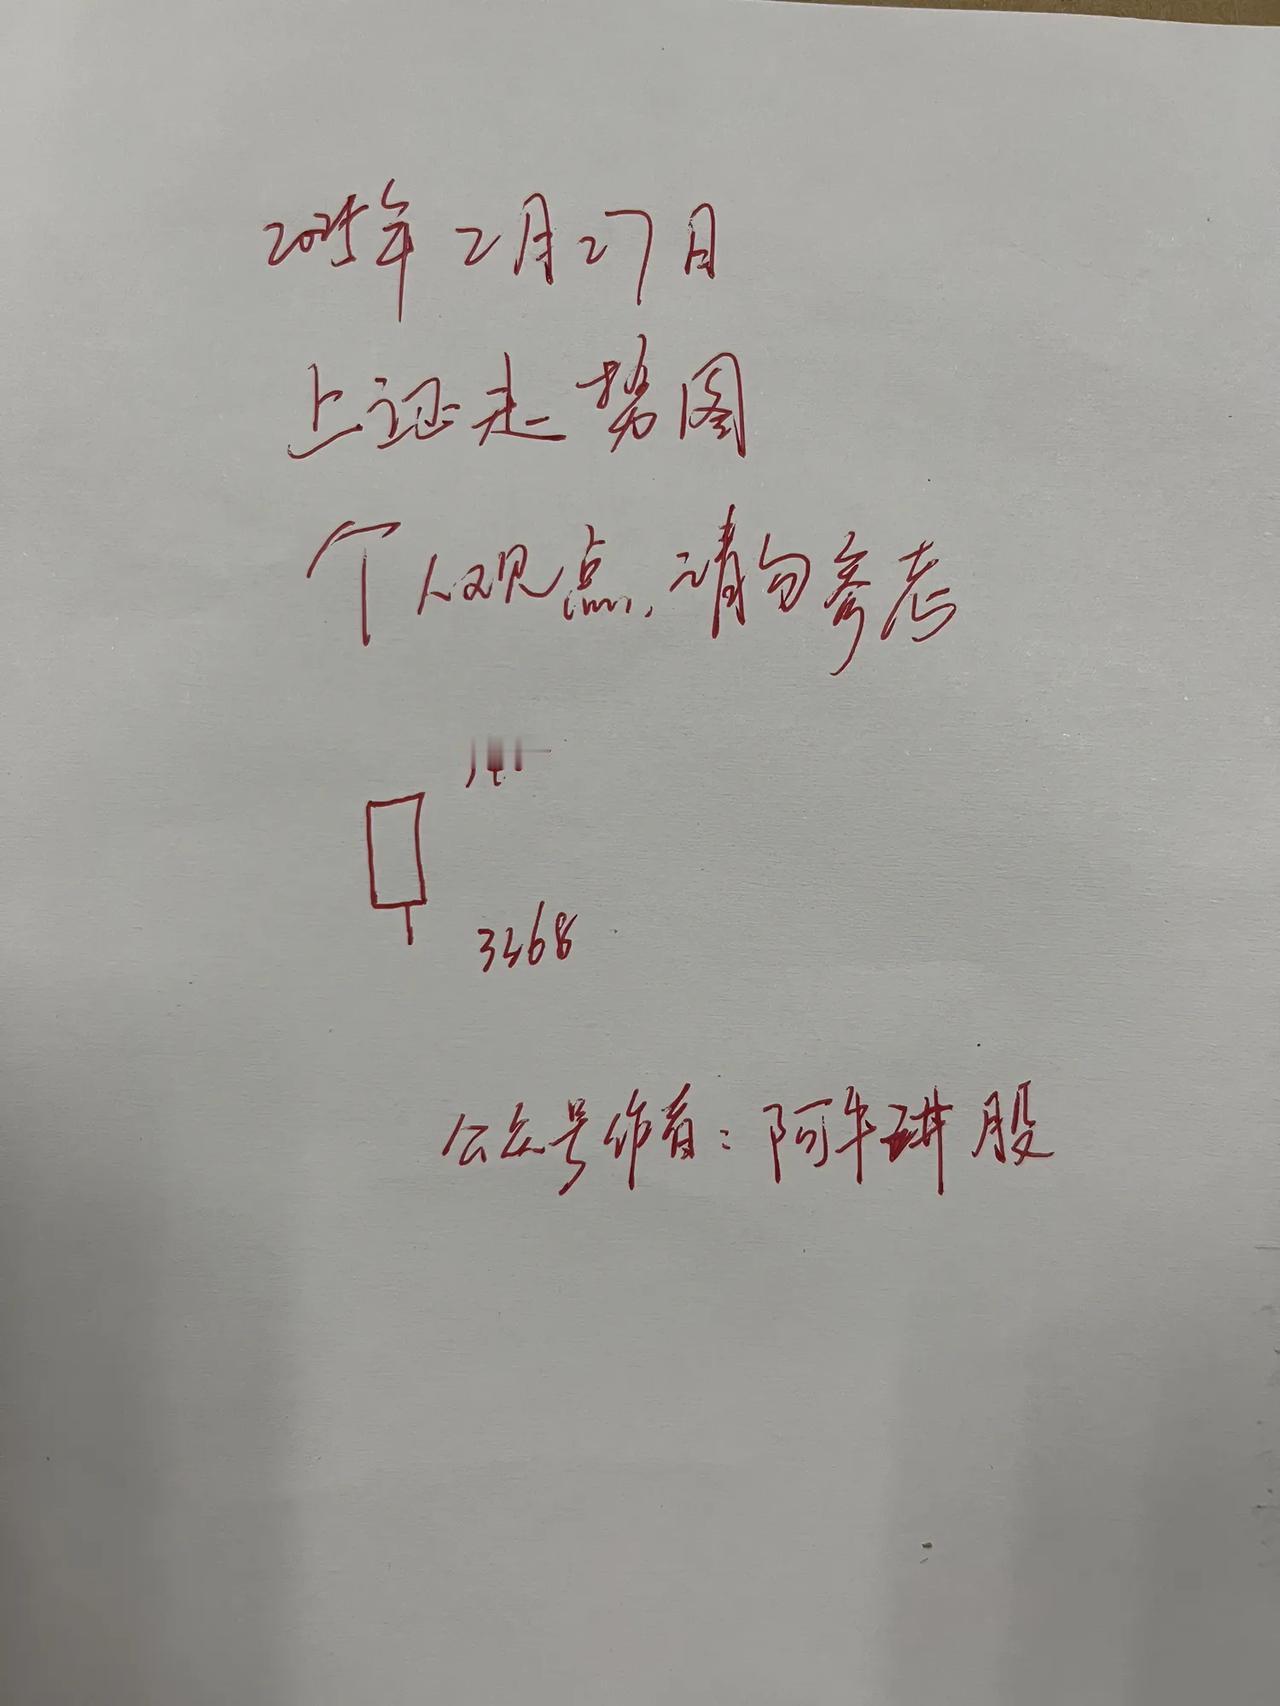 2025年2月27日
上证走势图
个人观点,请勿参考
3368
公众号作者:阿牛讲股